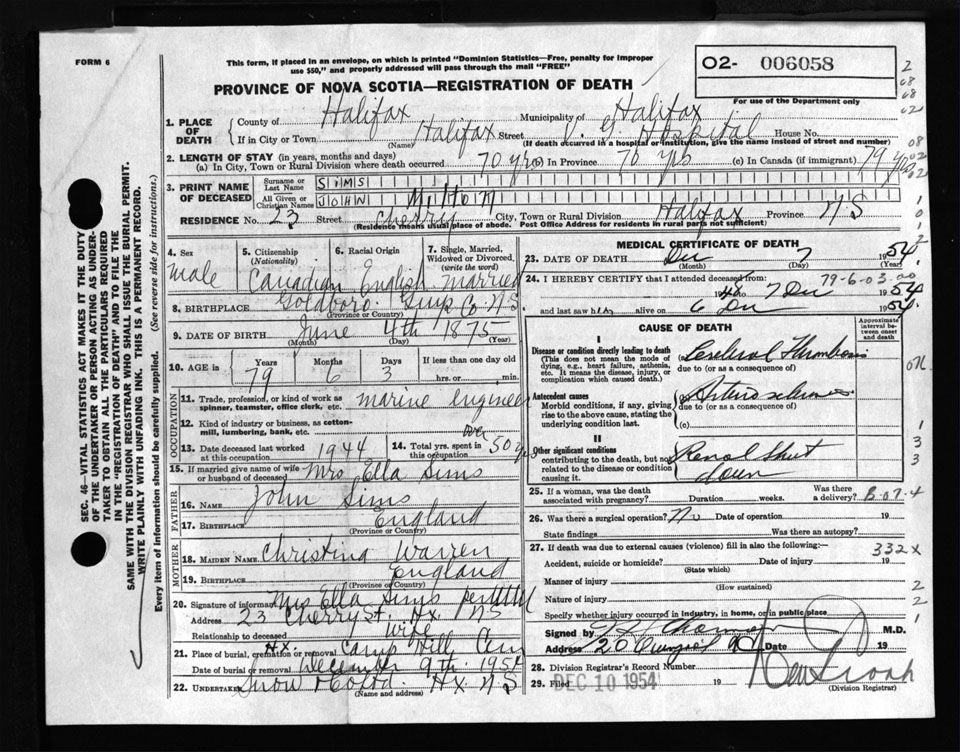 FORM 6
This form, if placed in an envelope, on which is printed "Dominion Statistics—Free, penalty for improper
use $50," and properly addressed will pass through the mail "FREE"
O2- 006058
For use of the Department only
PROVINCE OF NOVA SCOTIA—REGISTRATION OF DEATH
1. PLACE OF DEATH
County of Halifax Municipality of Halifax
If in City or Town Halifax Street V. G. Hospital House No.
(Name) (If death occurred in a hospital or institution, give the name instead of street and number)
2. LENGTH OF STAY (in years, months and days)
(a) In City, Town or Rural Division where death occurred 70 yrs (b) In Province 76 yrs (c) In Canada (if immigrant) 79 yrs
3. PRINT NAME OF DECEASED
Surname or Last Name SIMS
All Given or Christian Names JOHN Milton
RESIDENCE No. 23 Street Cherry City, Town or Rural Division Halifax NS
(Residence means usual place of abode. Post Office Address for residents in rural parts not sufficient)
4. Sex
male
5. Citizenship (Nationality)
Canadian
6. Racial Origin
English
7. Single, Married, Widowed or Divorced (write the word)
Married
8. BIRTHPLACE Goldboro Guys Co. N.S
(Province or Country)
9. DATE OF BIRTH June 4th 1875
(Month) (Day) (Year)
10. AGE in Years Months Days If less than one day old
79 6 3 hrs. or min.
OCCUPATION
11. Trade, profession, or kind of work as spinner, teamster, office clerk, etc. marine engineer
12. Kind of industry or business, as cotton-mill, lumbering, bank, etc.
13. Date deceased last worked at this occupation 1944
14. Total yrs. spent in this occupation over 50 yrs
15. If married give name of wife or husband of deceased Mrs Ella Sims
FATHER
16. NAME John Sims
17. BIRTHPLACE England
(Province or Country)
MOTHER
18. MAIDEN NAME Christina Warren
19. BIRTHPLACE England
(Province or Country)
20. Signature of informant Mrs Ella Sims
Address 23 Cherry St. Hx NS
Relationship to deceased wife
21. Place of burial, cremation or removal Hx. Camp Hill Cem
Date of burial or removal December 9th 1954
22. UNDERTAKER Snow & Co Ltd. Hx. N S
(Name and address)
MEDICAL CERTIFICATE OF DEATH
23. DATE OF DEATH Dec 7 1954
(Month) (Day) (Year)
24. I HEREBY CERTIFY that I attended deceased from: 79-6-03.00
to 7 Dec 1954
and last saw him alive on 6 Dec 1954
CAUSE OF DEATH
Approximate interval between onset and death
I
Disease or condition directly leading to death
(This does not mean the mode of dying, e.g., heart failure, asthenia, etc. It means the disease, injury, or complication which caused death.)
(a) Cerebral Thrombosis
due to (or as a consequence of)
Antecedent causes
Morbid conditions, if any, giving rise to the above cause, stating the underlying condition last.
(b) Arteriosclerosis
due to (or as a consequence of)
(c)
II
Other significant conditions
contributing to the death, but not related to the disease or condition causing it.
Renal Shut down
25. If a woman, was the death associated with pregnancy? Duration weeks. Was there a delivery? B-07-4
26. Was there a surgical operation? No Date of operation 19
State findings Was there an autopsy?
27. If death was due to external causes (violence) fill in also the following:— 332x
Accident, suicide or homicide? (State which) Date 19
Manner of injury
(How sustained)
Nature of injury
Specify whether injury occurred in industry, in home, or in public place
Signed by M.D.
Address Date 19
28. Division Registrar's Record Number
29. Filed DEC 10 1954 19
(Division Registrar)
SEC. 46—VITAL STATISTICS ACT MAKES IT THE DUTY
OF THE UNDERTAKER OR PERSON ACTING AS UNDER-
TAKER TO OBTAIN ALL THE PARTICULARS REQUIRED
IN THE "REGISTRATION OF DEATH" AND TO FILE THE
SAME WITH THE DIVISION REGISTRAR WHO SHALL ISSUE THE BURIAL PERMIT.
WRITE PLAINLY WITH UNFADING INK. THIS IS A PERMANENT RECORD.
Every item of information should be carefully supplied. (See reverse side for instructions.)